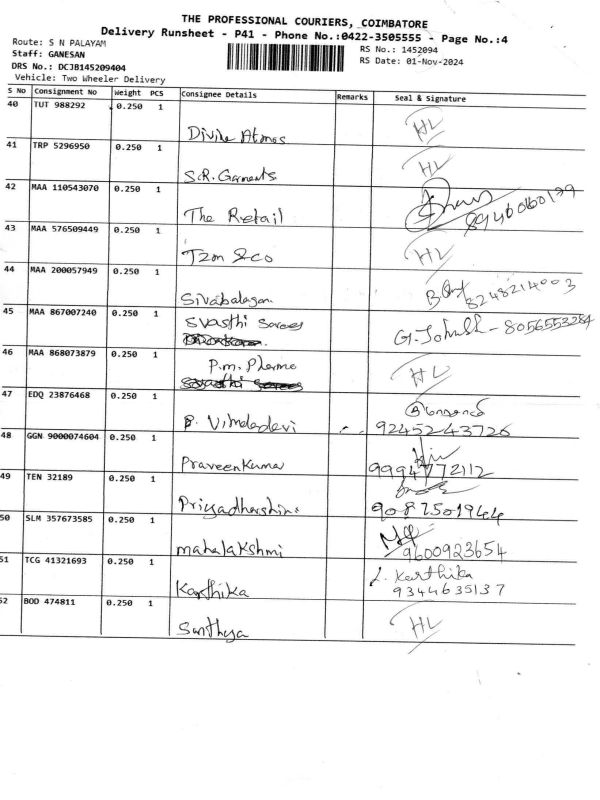 THE PROFESSIONAL COURIERS, COIMBATORE
Delivery Runsheet - P41 - Phone No.:0422-3505555 - Page No.:4
Route: S N PALAYAM
RS No.: 1452094
Staff: GANESAN
RS Date: 01-Nov-2024
DRS No.: DCJB145209404
Vehicle: Two Wheeler Delivery
S No Consignment No Weight PCS Consignee Details Remarks Seal & Signature
40 TUT 988292 0.250 1
Divine Atmos HL
41 TRP 5296950 0.250 1
S.R. Garments HL
42 MAA 110543070 0.250 1
The Retail 8946060199
43 MAA 576509449 0.250 1
Tzon & co HL
44 MAA 200057949 0.250 1
Sivabalagan 8248214003
45 MAA 867007240 0.250 1
Svasthi Sarees 8056553284
46 MAA 868073879 0.250 1
P.m. Pharma HL
47 EDQ 23876468 0.250 1
B. Vimaladevi 9245243726
48 GGN 9000074604 0.250 1
Praveenkumar 9994772112
49 TEN 32189 0.250 1
Priyadharshini 9087501944
50 SLM 357673585 0.250 1
mahalakshmi 9600923654
51 TCG 41321693 0.250 1
Karthika L. Karthika
9344635137
52 BOD 474811 0.250 1
Santhya HL